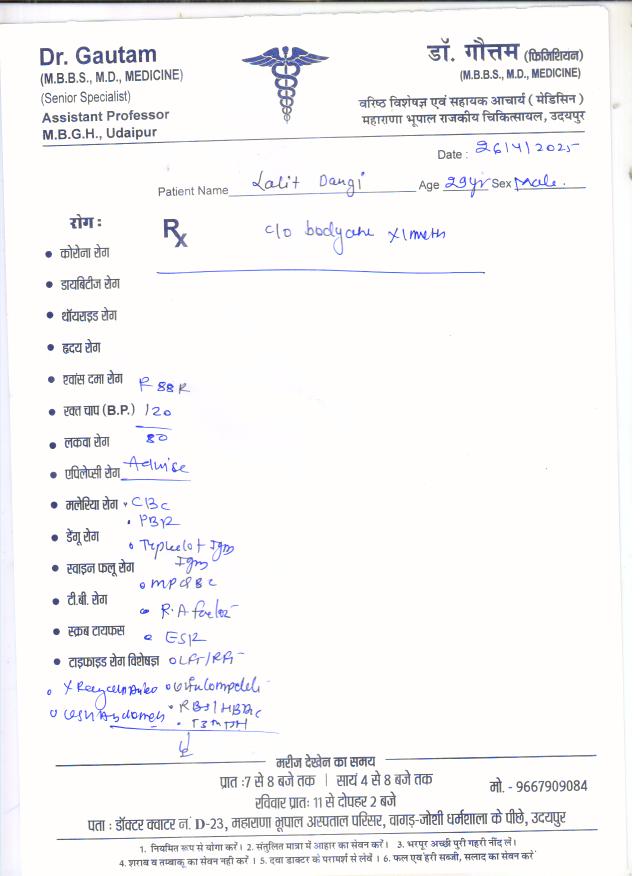 Dr. Gautam
(M.B.B.S., M.D., MEDICINE)
(Senior Specialist)
Assistant Professor
M.B.G.H., Udaipur
डॉ. गौत्तम (फिजिशियन)
(M.B.B.S., M.D., MEDICINE)
वरिष्ठ विशेषज्ञ एवं सहायक आचार्य ( मेडिसिन )
महाराणा भूपाल राजकीय चिकित्सायल, उदयपुर
Date : 26/4/2025
Patient Name Lalit Dangi Age 29yr Sex Male.
रोग :
Rx
c/o bodyache x1
• कोरोना रोग
• डायबिटीज रोग
• थॉयराइड रोग
• हृदय रोग
• श्वांस दमा रोग P 88
• रक्त चाप (B.P.) 120
80
• लकवा रोग
• एपिलेप्सी रोग Advise
• मलेरिया रोग • CBC
• PBR
• डेंगू रोग
• IgM
IgM
• स्वाइन फलू रोग
• MP
• टी.बी. रोग • R.A factor
• स्क्रब टायफस • ESR
• टाइफाइड रोग विशेषज्ञ • LFT/RFT
• X Ray • Urine
• USG Abdomen • RBS/HBA1c
• T3
मरीज देखेन का समय
प्रात :7 से 8 बजे तक | सायं 4 से 8 बजे तक
रविवार प्रातः 11 से दोपहर 2 बजे
मो. - 9667909084
पता : डॉक्टर क्वाटर नं. D-23, महाराणा भूपाल अस्पताल परिसर, वागड़-जोशी धर्मशाला के पीछे, उदयपुर
1. नियमित रूप से योगा करें। 2. संतुलित मात्रा में आहार का सेवन करें। 3. भरपूर अच्छी पुरी गहरी नींद लें।
4. शराब व तम्बाकू का सेवन नही करें । 5. दवा डाक्टर के परामर्श से लेवें । 6. फल एवं हरी सब्जी, सलाद का सेवन करें